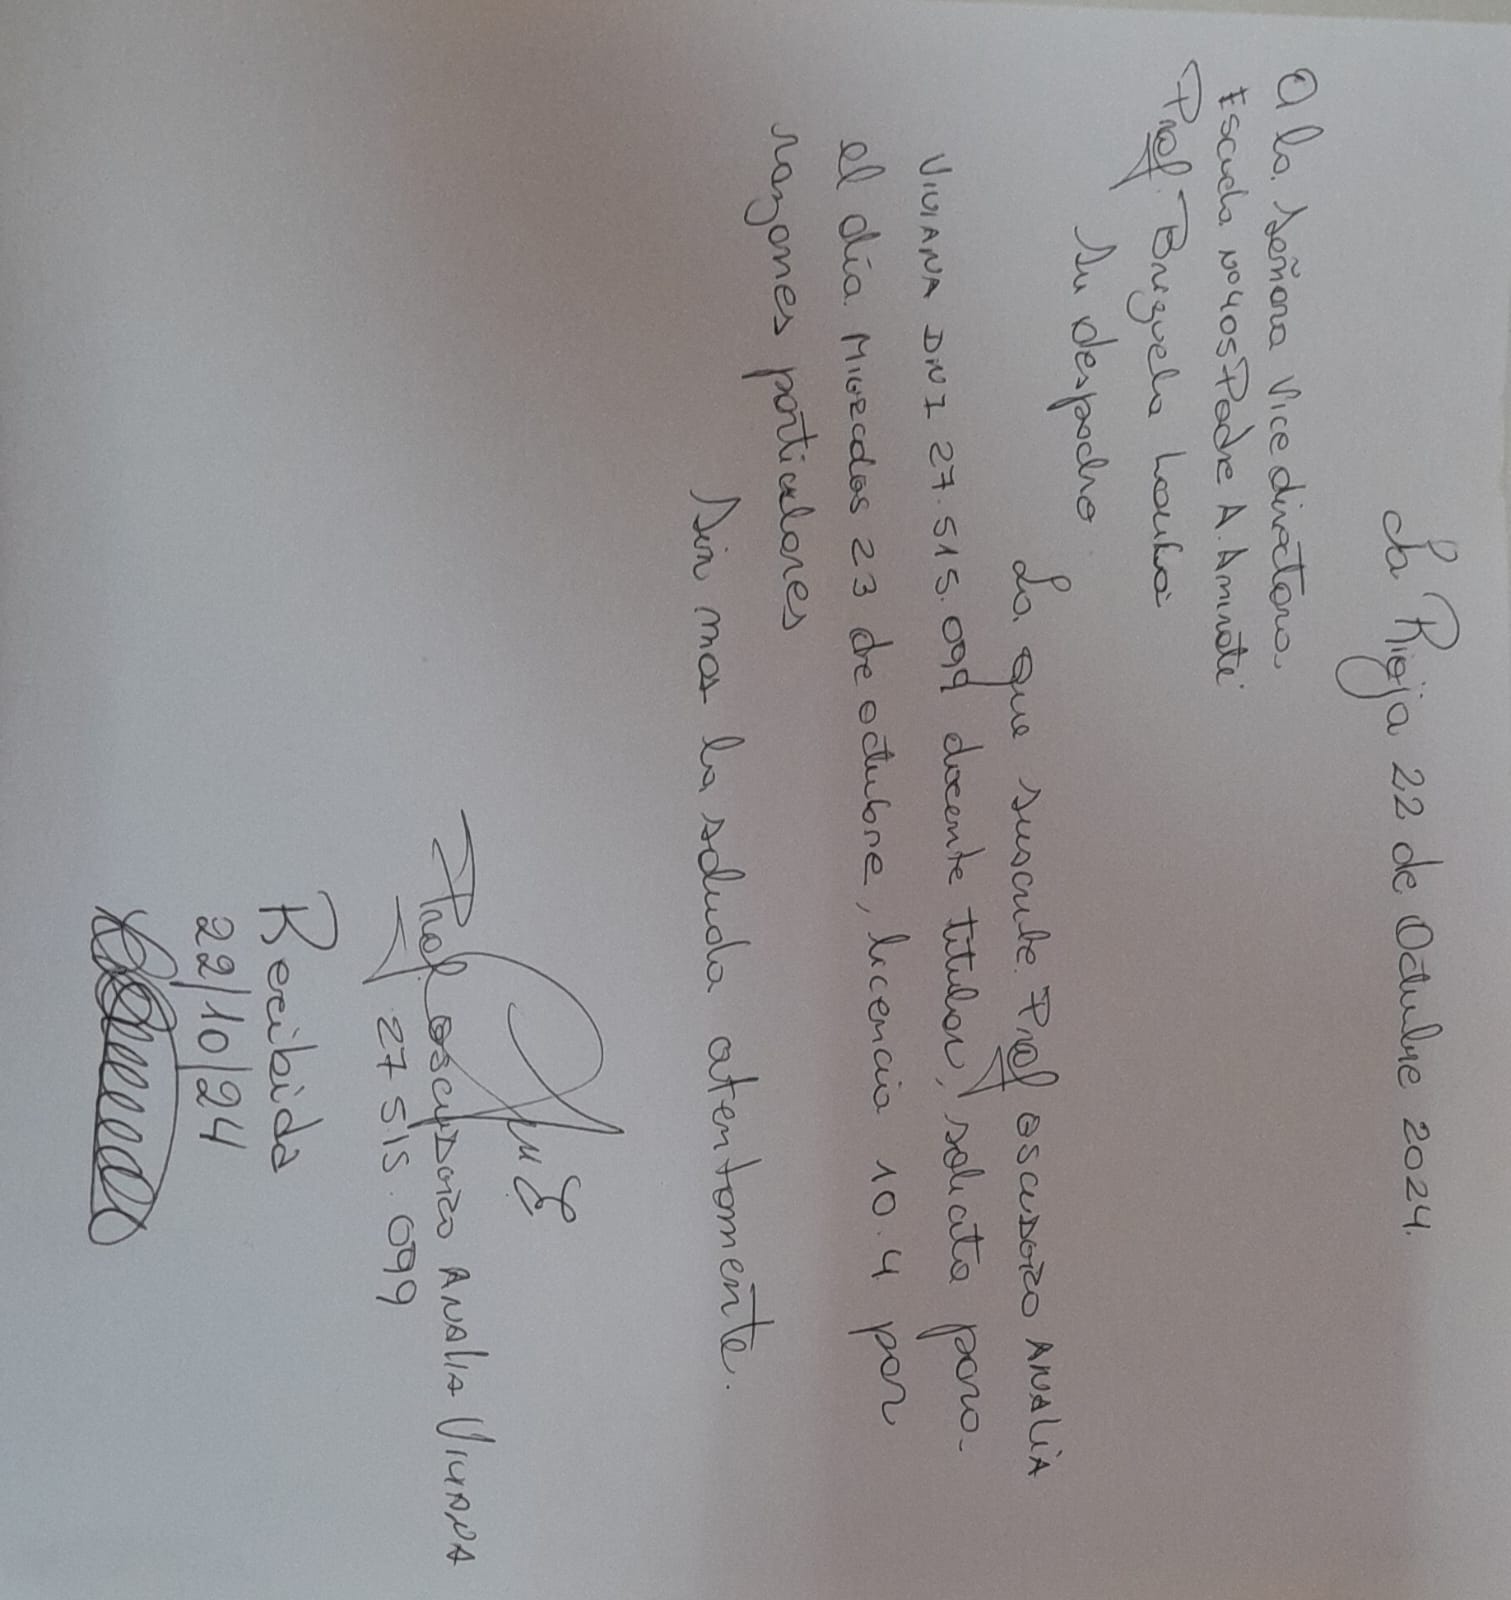 La Rioja 22 de Octubre 2024.
A la Señora Vice directora
Escuela Nº 405 Padre A. Aminate
Prof. Brizuela Laura
Su despacho
La que suscribe Prof OSCUDERO ANALIA
VIVIANA DNI 27.515.099 docente titular, solicita para
el día Miercoles 23 de octubre, licencia 10.4 por
razones particulares
Sin mas la saluda atentamente.
Prof. OSCUDERO ANALIA VIVIANA
27 515.099
Recibida
22/10/24